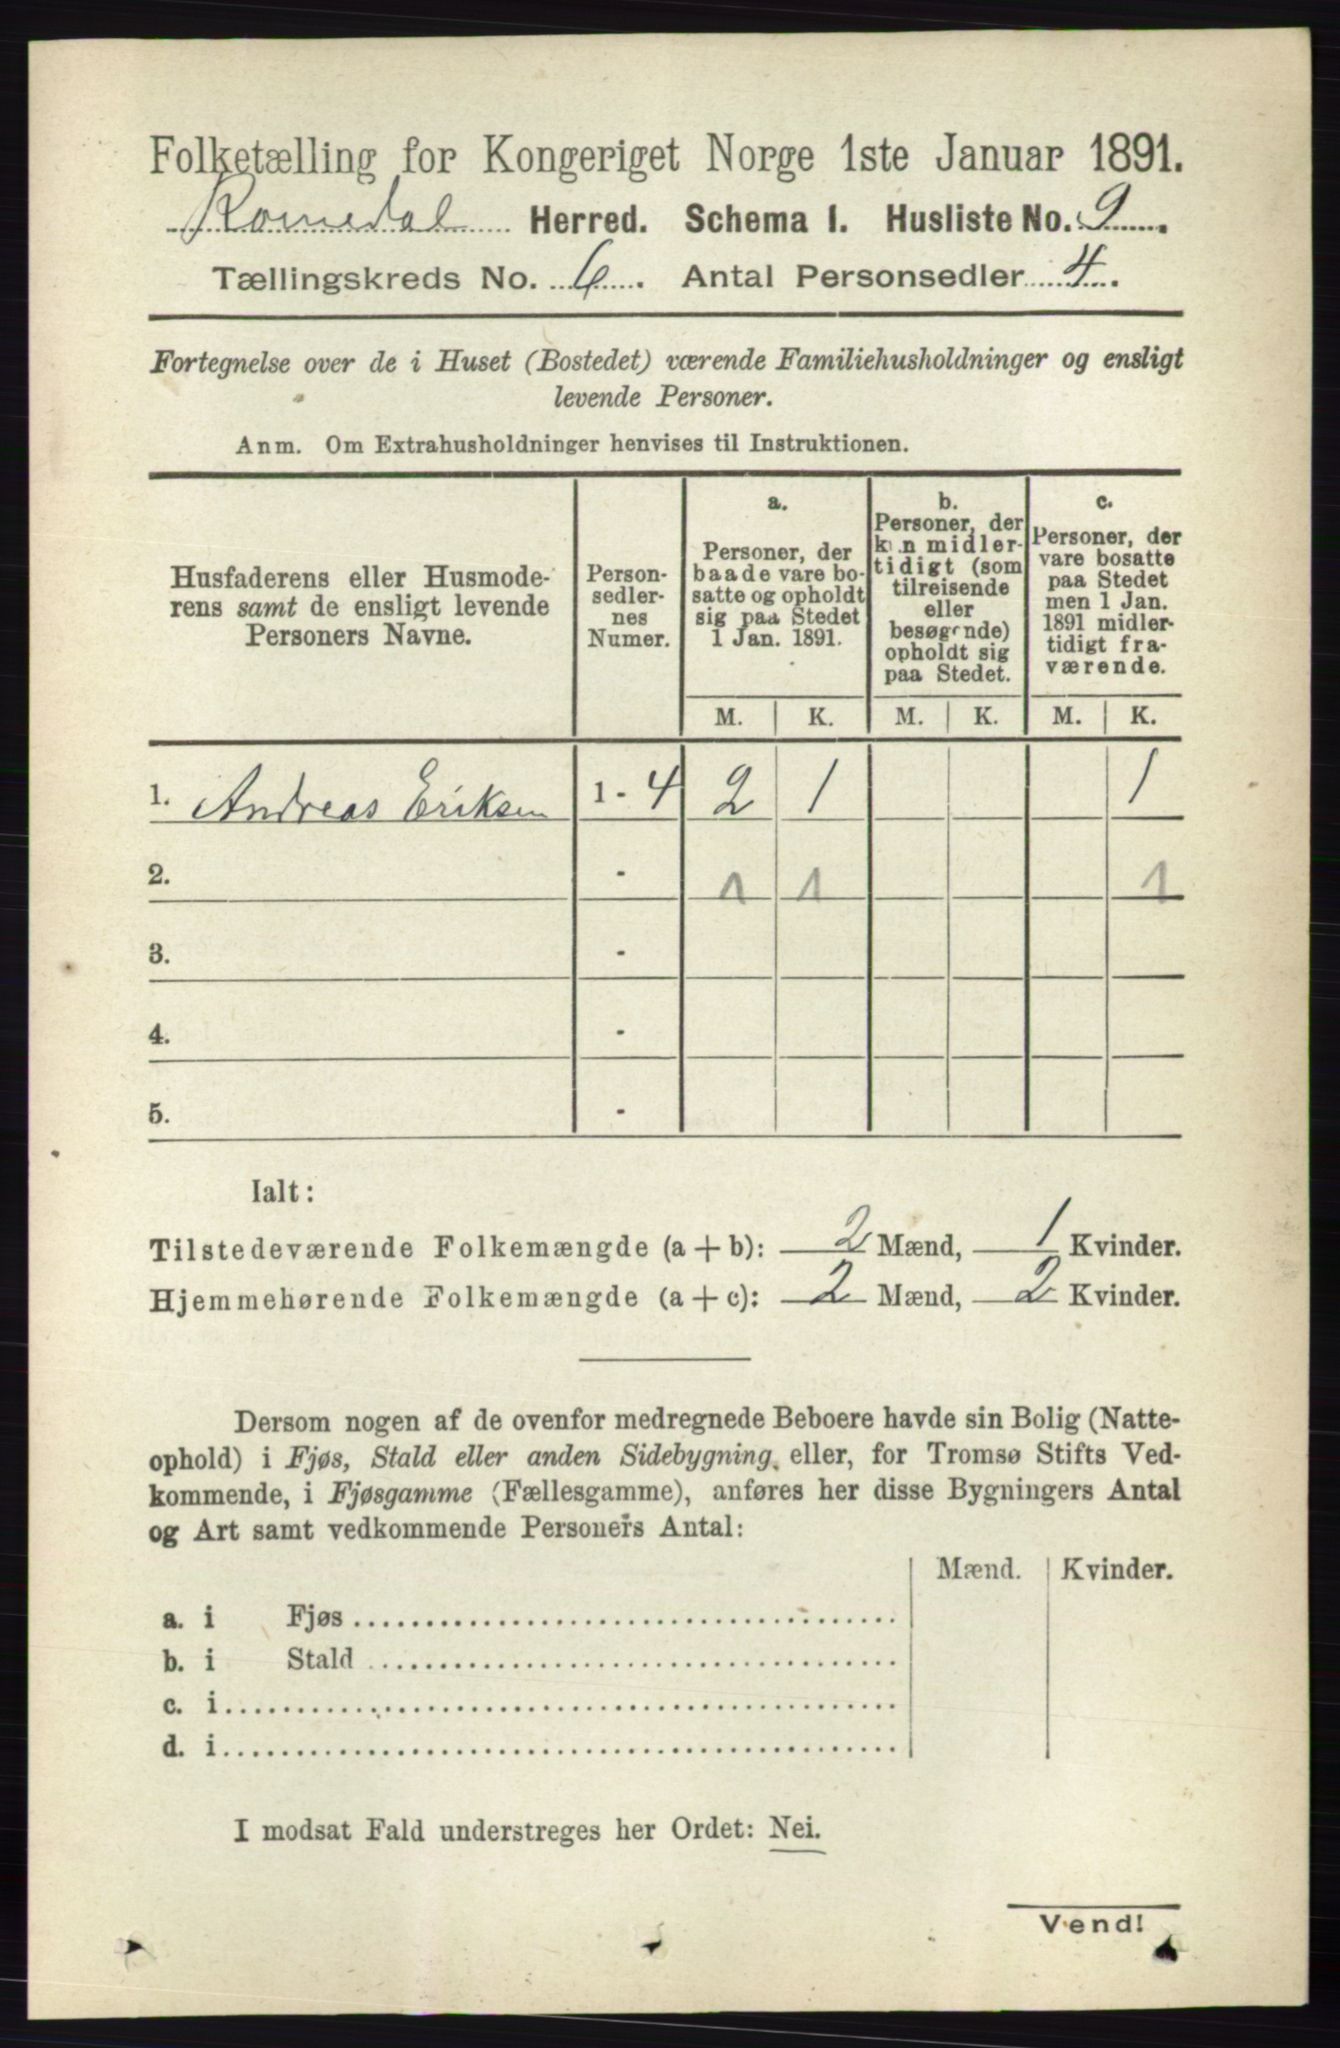 Folketælling for Kongeriget Norge 1ste Januar 1891.
Romedal Herred. Schema 1. Husliste No. 9
Tællingskreds No. 6. Antal Personsedler 4.
Fortegnelse over de i Huset (Bostedet) værende Familiehusholdninger og ensligt
levende Personer.
Anm. Om Extrahusholdninger henvises til Instruktionen.
Husfaderens eller Husmode-
rens samt de ensligt levende
Personers Navne.
Person-
sedler-
nes
Numer.
a.
Personer, der
baade vare bo-
satte og opholdt
sig paa Stedet
1 Jan. 1891.
b.
Personer, der
kun midler-
tidigt (som
tilreisende
eller
besøgende)
opholdt sig
paa Stedet.
c.
Personer, der
vare bosatte
paa Stedet
men 1 Jan.
1891 midler-
tidigt fra-
værende.
M. K. M. K. M. K.
1. Andreas Eriksen 1 - 4 2 1 1
2. - 1 1 1
3. -
4. -
5. -
Ialt:
Tilstedeværende Folkemængde (a + b): 2 Mænd, 1 Kvinder.
Hjemmehørende Folkemængde (a + c): 2 Mænd, 2 Kvinder.
Dersom nogen af de ovenfor medregnede Beboere havde sin Bolig (Natte-
ophold) i Fjøs, Stald eller anden Sidebygning, eller, for Tromsø Stifts Ved-
kommende, i Fjøsgamme (Fællesgamme), anføres her disse Bygningers Antal
og Art samt vedkommende Personers Antal:
Mænd. Kvinder.
a. i Fjøs
b. i Stald
c. i
d. i
I modsat Fald understreges her Ordet: Nei.
Vend!